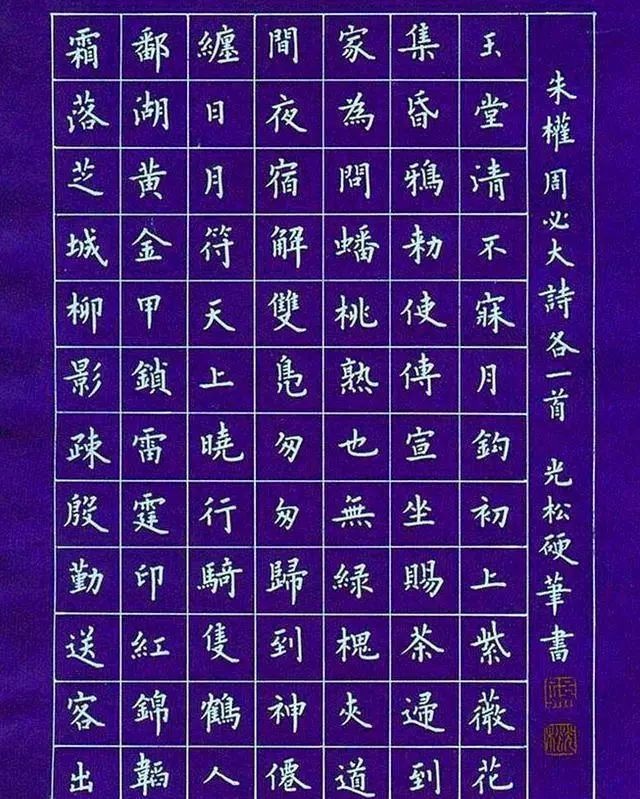 霜落芝城柳影疎殷勤送客出
鄱湖黃金甲鎖雷霆印紅錦韜
纏日月符天上曉行騎隻鶴人
間夜宿解雙鳧匆匆歸到神僊
家為問蟠桃熟也無綠槐夾道
集昏鴉勅使傳宣坐賜茶歸到
玉堂清不寐月鈎初上紫薇花
朱權周必大詩各一首 光松硬筆書